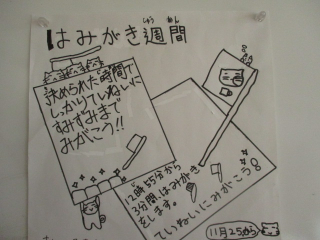 はみがき週間
しゅう かん
決められた時間で
しっかりていねいに
すみずみまで
みがこう!!
12時55分から
3分間、はみがき
をします。
ていねいにみがこう!
11月25から